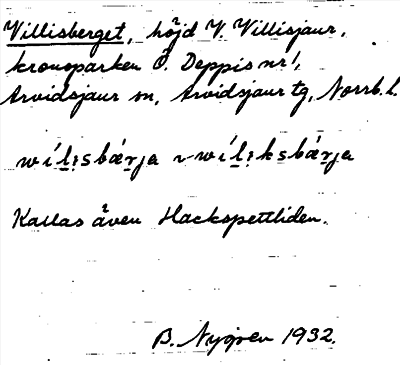 Villisberget, höjd V. Villisjaur,
kronoparken Ö. Deppis nr 1,
Arvidsjaur sn, Arvidsjaur tg, Norrb. l.
wíl̥isbærja ~ wíl̥iksbærja
Kallas även Hackspettliden.
B. Nygren 1932.